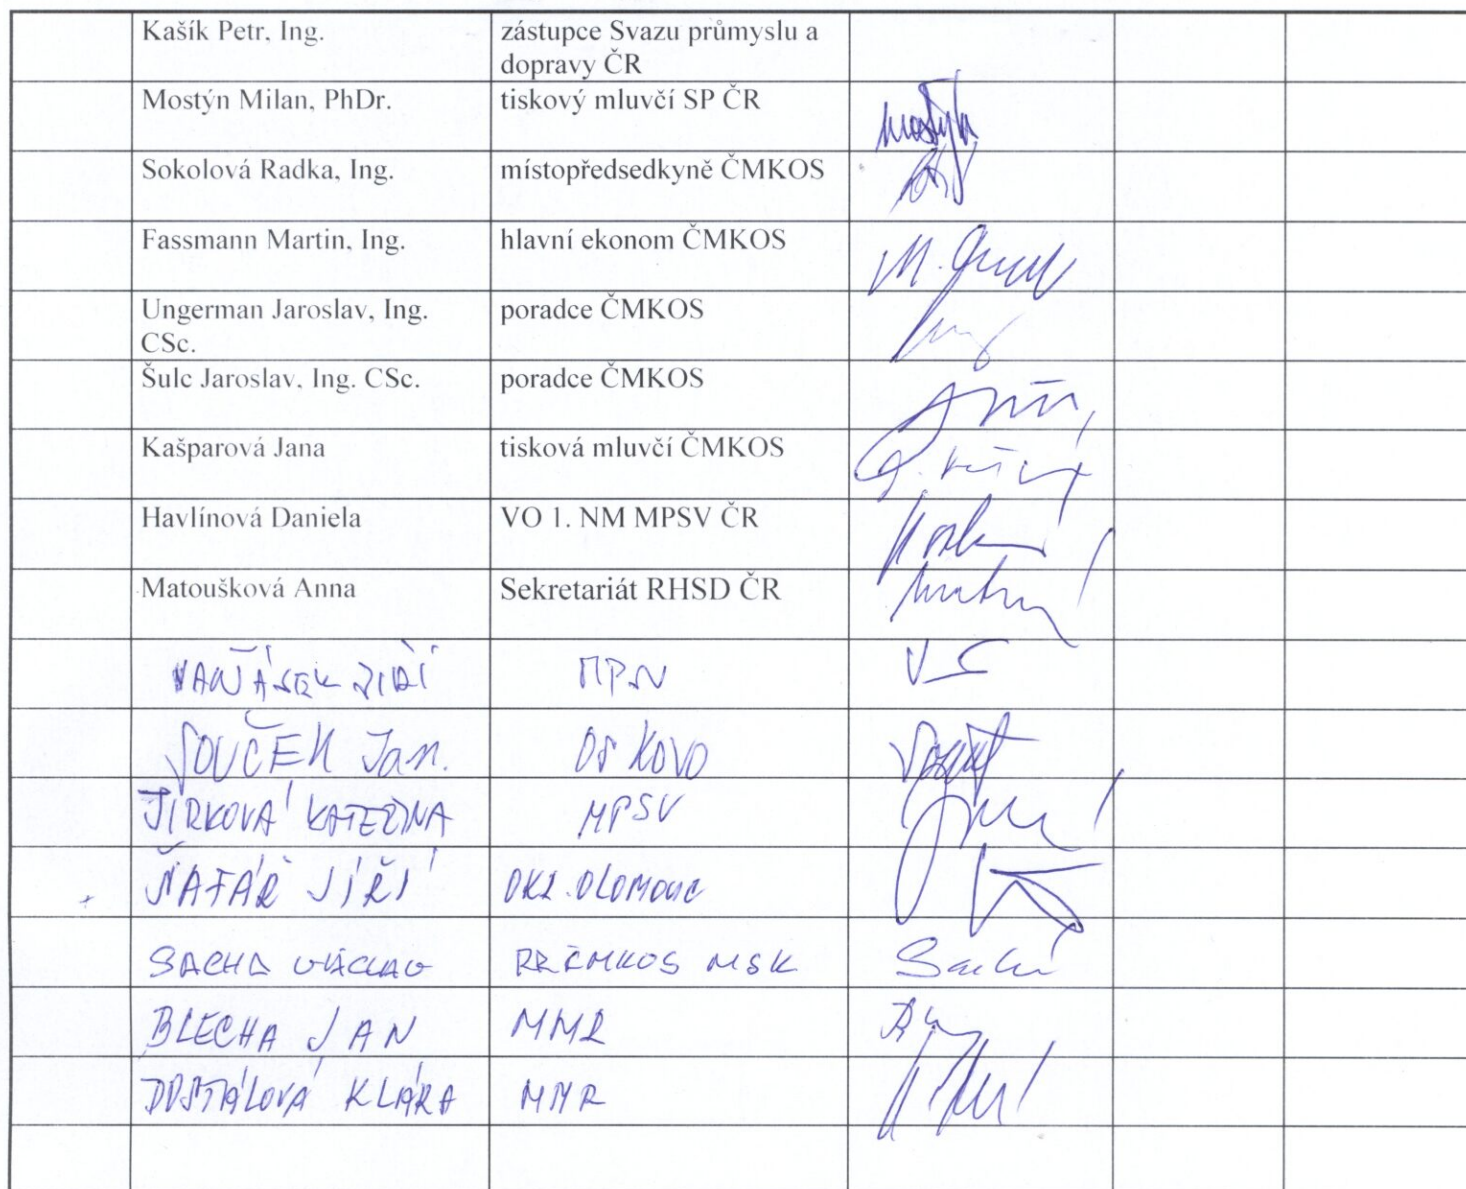 Kašík Petr, Ing. zástupce Svazu průmyslu a
dopravy ČR
Mostýn Milan, PhDr. tiskový mluvčí SP ČR
Mostýn
Sokolová Radka, Ing. místopředsedkyně ČMKOS
Fassmann Martin, Ing. hlavní ekonom ČMKOS
Ungerman Jaroslav, Ing. poradce ČMKOS
CSc.
Šulc Jaroslav, Ing. CSc. poradce ČMKOS
Kašparová Jana tisková mluvčí ČMKOS
Havlínová Daniela VO 1. NM MPSV ČR
Matoušková Anna Sekretariát RHSD ČR
JIŘÍ
SOUČEK Jan. OS KOVO
JÍRKOVÁ KATEŘINA MPSV
ŠAFÁŘ JIŘÍ OLOMOUC
SACHA VÁCLAV RRČMKOS MSK
BLECHA JAN MMR
DOSTÁLOVÁ KLÁRA MMR